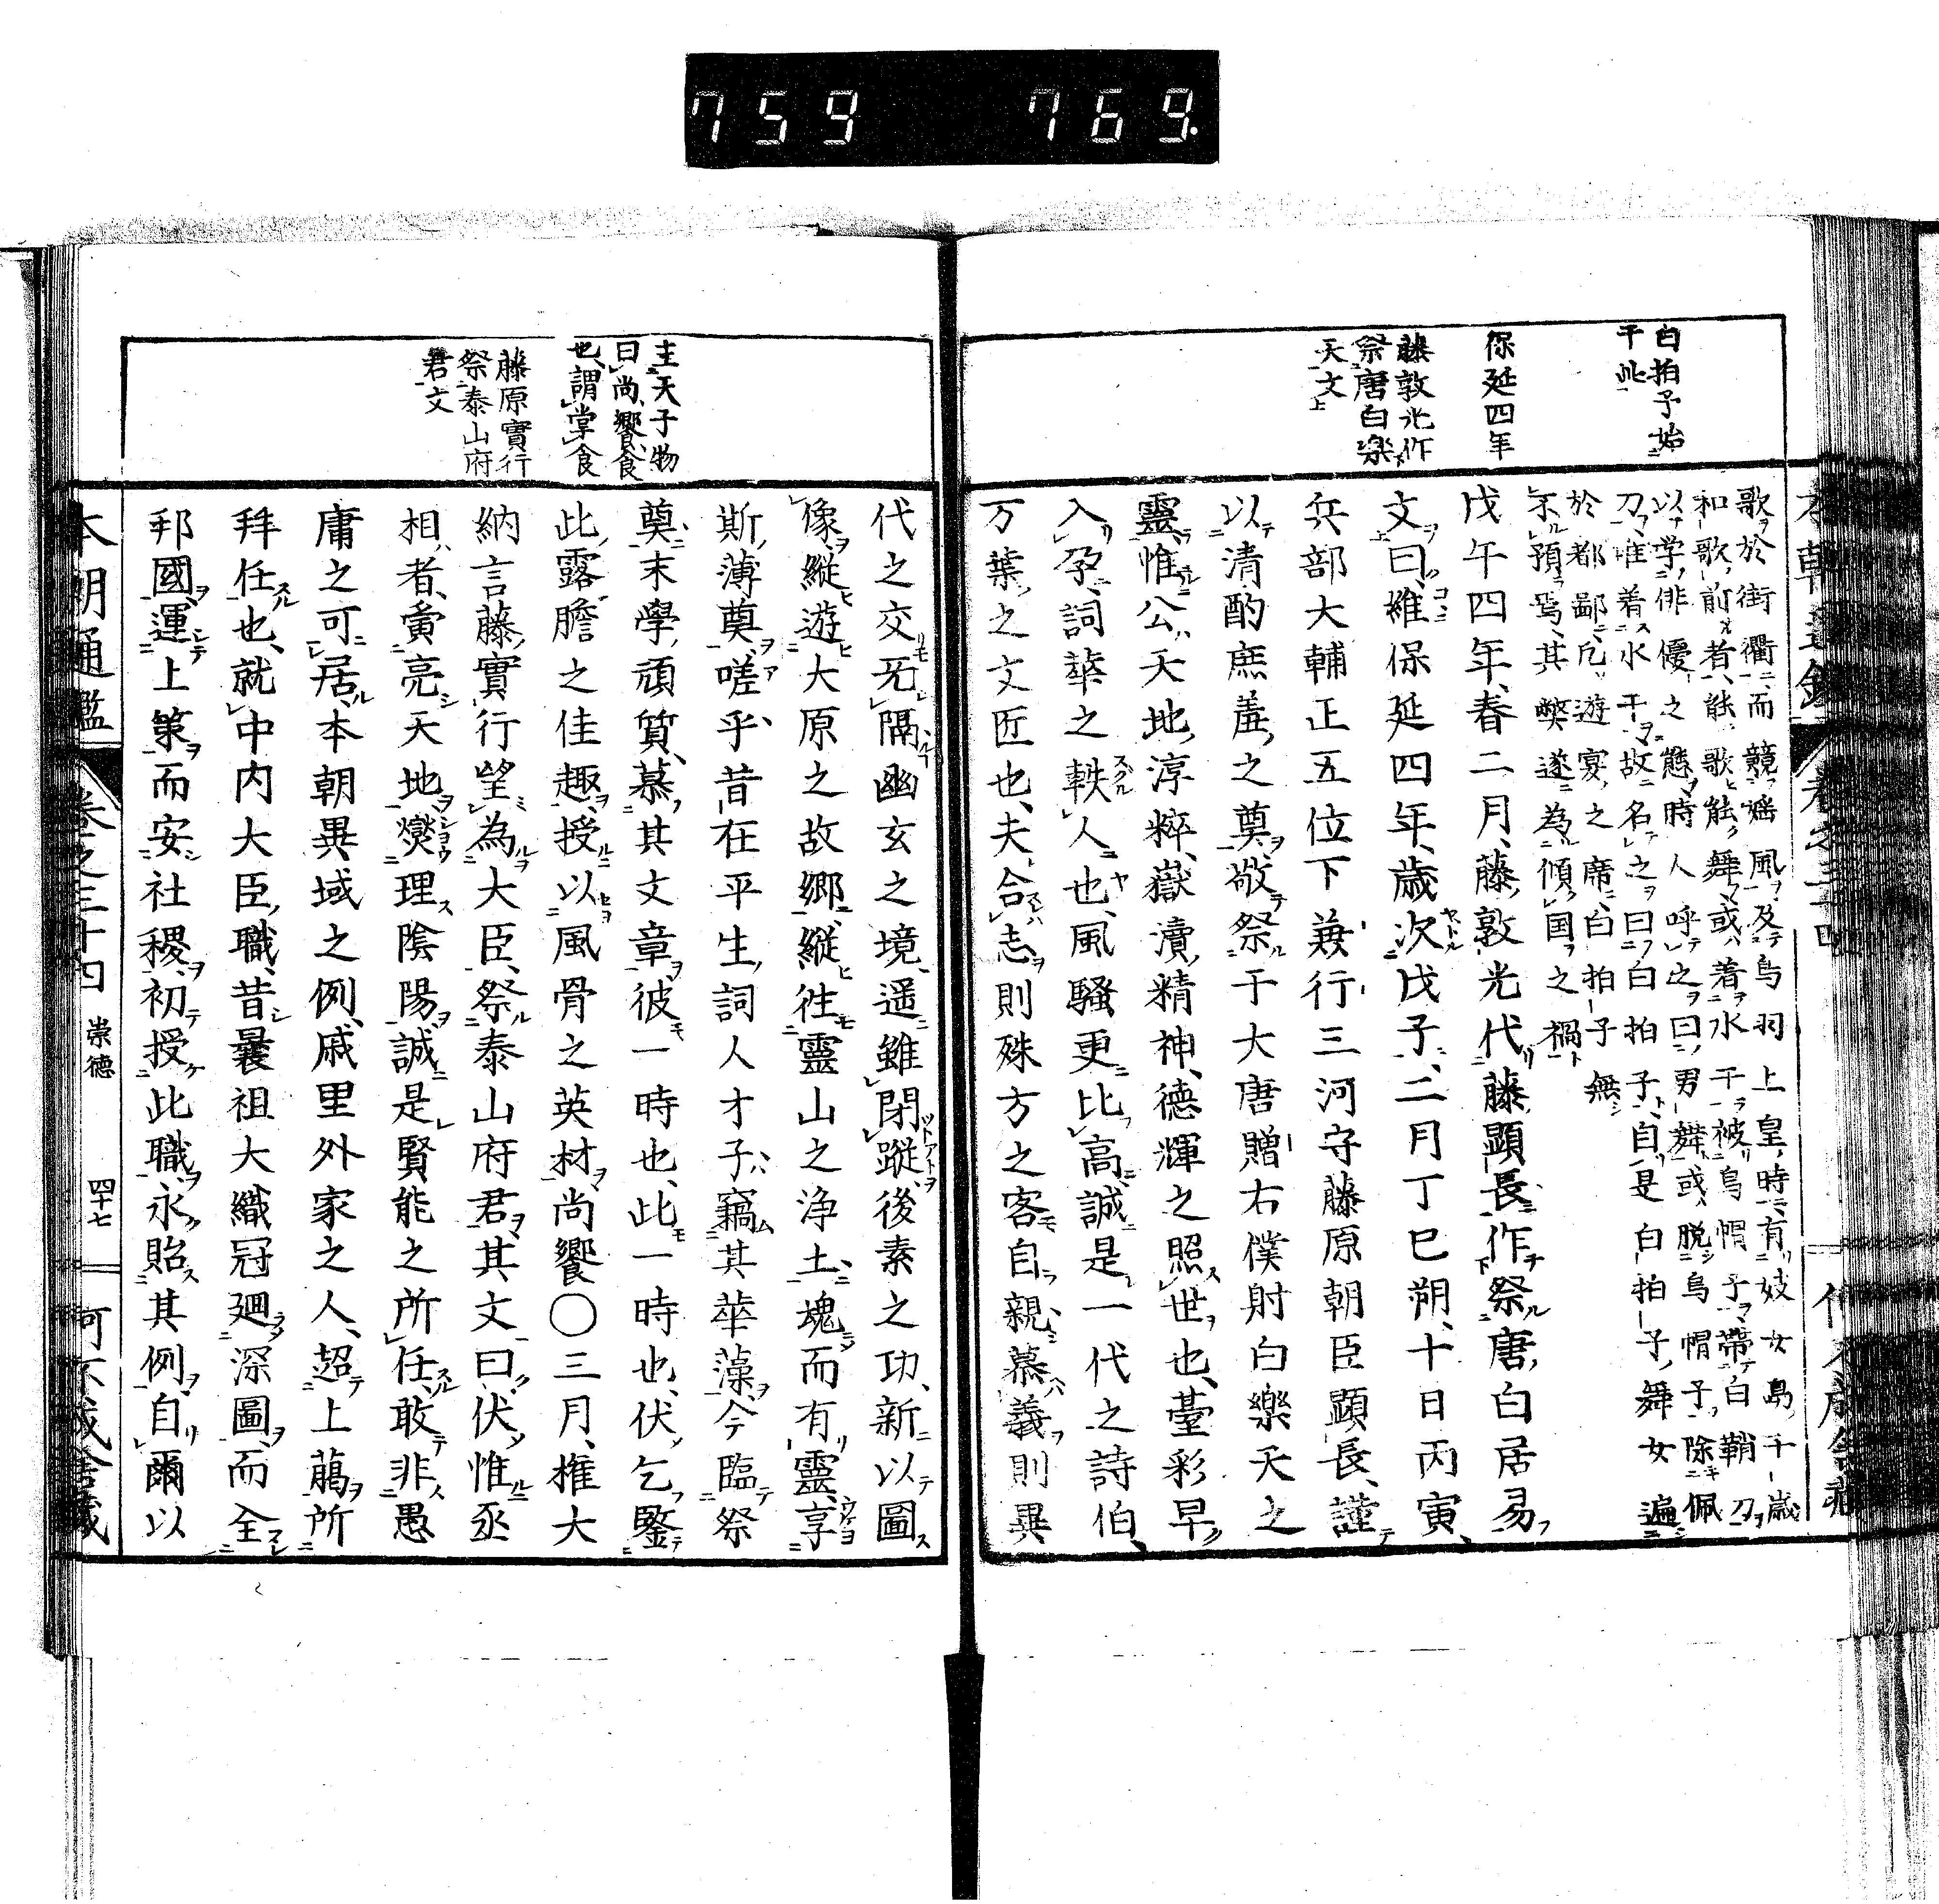 759 769.
白拍子始
于此
保延四年
藤敦光作
祭唐白樂
天文
歌於街衢而競婬風及鳥羽上皇時有妓女島千歳
和歌前者能歌能舞或着水干被烏帽子帶白鞘刀
以学俳優之態時人呼之曰男舞或脱烏帽子除佩
刀唯着水干故名之曰白拍子自是白拍子舞女遍
於都鄙凢遊宴之席白拍子無
不預焉其弊遂為傾国之禍
戊午四年春二月藤敦光代藤顕長作祭唐白居易
文曰維保延四年歳次戊子二月丁巳朔十日丙寅
兵部大輔正五位下兼行三河守藤原朝臣顕長謹
以清酌庶羞之奠敬祭于大唐贈右僕射白樂天之
靈惟公天地淳粹嶽瀆精神德輝之照世也臺彩早
入孕詞華之軼人也風騒更比高誠是一代之詩伯
万葉之文匠也夫合志則殊方之客自親慕義則異
主天子物
曰尚饗食
也謂掌食
藤原實行
祭泰山府
君文
代之交旡隔幽玄之境遥雖閉蹤後素之功新以圖
像縦遊大原之故郷縦徃靈山之浄土魂而有靈享
斯薄奠嗟乎昔在平生詞人才子竊其華藻今臨祭
奠末學頑質慕其文章彼一時也此一時也伏乞鑒
此露膽之佳趣授以風骨之英材尚饗〇三月権大
納言藤實行望為大臣祭泰山府君其文曰伏惟丞
相者夤亮天地燮理陰陽誠是賢能之所任敢非愚
庸之可居本朝異域之例戚里外家之人超上﨟所
拜任也就中内大臣職昔曩祖大織冠廻深圖而全
邦國運上策而安社稷初授此職永貽其例自爾以
本朝通鑑 卷之三十四 崇德 四十七